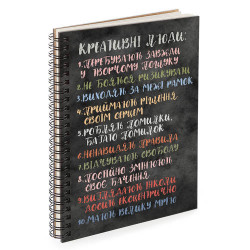 КРЕАТИВНІ ЛЮДИ:
1. ПЕРЕБУВАЮТЬ ЗАВЖДИ
У ТВОРЧОМУ ПОШУКУ
2. НЕ БОЯТЬСЯ РИЗИКУВАТИ
3. ВИХОДЯТЬ ЗА МЕЖІ РАМОК
4. ПРИЙМАЮТЬ РІШЕННЯ
СВОЇМ СЕРЦЕМ
5. РОБЛЯТЬ ПОМИЛКИ,
БАГАТО ПОМИЛОК
6. НЕНАВИДЯТЬ ПРАВИЛА
7. ВІДЧУВАЮТЬ СВОБОДУ
8. ПОСТІЙНО ЗМІНЮЮТЬ
СВОЄ БАЧЕННЯ
9. ВИГЛЯДАЮТЬ ІНКОЛИ
ДОСИТЬ ЕКСЦЕНТРИЧНО
10. МАЮТЬ ВЕЛИКУ МРІЮ